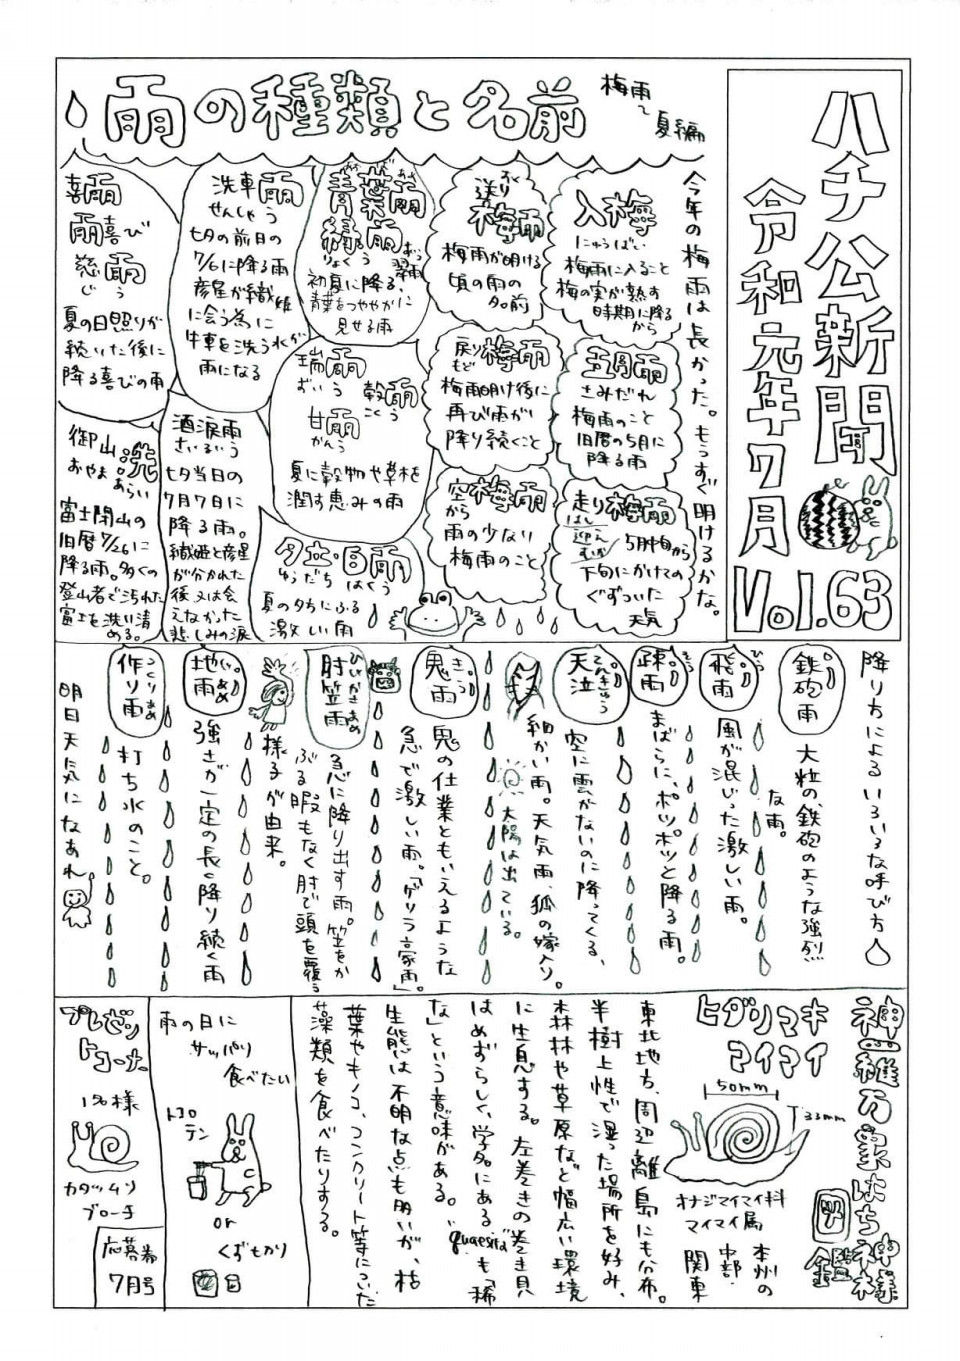 ハチ公新聞
令和元年7月
Vol.63
雨の種類と名前
梅雨〜夏編
今年の梅雨は長かった。もうすぐ明けるかな。
入梅
にゅうばい
梅雨に入ること
梅の実が熟す
時期に降る
から
五月雨
さみだれ
梅雨のこと
旧暦の5月に
降る雨
走り梅雨
はしり
迎え
むかえ
5月中旬から
下旬にかけての
ぐずついた
天気
送り梅雨
おくり
梅雨が明ける
頃の雨の
名前
戻り梅雨
もど
梅雨明け後に
再び雨が
降り続くこと
空梅雨
から
雨の少ない
梅雨のこと
青葉雨
あおば
緑雨
りょくう
翠雨
初夏に降る、
青葉をつややかに
見せる雨
瑞雨
ずいう
穀雨
こくう
甘雨
かんう
夏に穀物や草木を
潤す恵みの雨
夕立・白雨
ゆうだち はくう
夏の夕方にふる
激しい雨
洗車雨
せんしゃう
七夕の前日の
7/6に降る雨
彦星が織姫
に会う為に
牛車を洗う水が
雨になる
酒涙雨
さいるいう
七夕当日の
7月7日に
降る雨。
織姫と彦星
が分かれた
後又は会
えなかった
悲しみの涙
喜雨
雨喜び
慈雨
じう
夏の日照りが
続いた後に
降る喜びの雨
御山洗
おやまあらい
富士閉山の
旧暦7/26に
降る雨。多くの
登山者で汚れた
富士を洗い清
める。
降り方によるいろいろな呼び方
鉄砲雨
大粒の、鉄砲のような強烈
な雨。
飛雨
ひう
風が混じった激しい雨。
疎雨
そう
まばらに、ポツポツと降る雨。
天泣
てんきゅう
空に雲がないのに降ってくる、
細かい雨。天気雨、狐の嫁入り。
太陽は出ている。
鬼雨
きう
鬼の仕業ともいえるような
急で激しい雨。「ゲリラ豪雨。」
肘笠雨
ひじかさあめ
急に降り出す雨。笠をか
ぶる暇もなく肘で頭を覆う
様子が由来。
地雨
じあめ
強さが一定の長く降り続く雨
作り雨
つくりあめ
打ち水のこと。
明日天気になあれ
神羅万象はち神様
図鑑
ヒダリマキ
マイマイ
50mm
33mm
オナジマイマイ科
マイマイ属
本州の
中部・
関東
東北地方、周辺離島にも分布。
半樹上性で湿った場所を好み、
森林や草原など幅広い環境
に生息する。左巻きの巻き貝
はめずらしく、学名にある"quaesita"も「稀
な」という意味がある。
生態は不明な点も多いが、枯
葉やキノコ、コンクリート等についた
藻類を食べたりする。
雨の日に
サッパリ
食べたい
トコロ
テン
or
くずもかり
プレゼン
トコーナー
1名様
カタツムリ
ブローチ
応募券
7月号